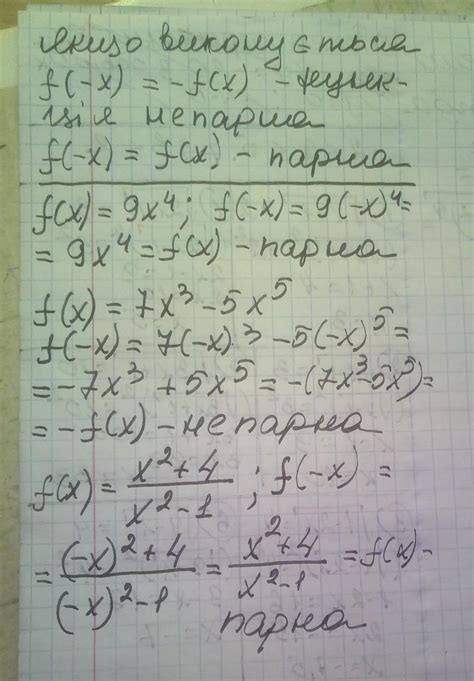 якщо виконується
f(-x) = -f(x) - функ-
ція непарна
f(-x) = f(x) - парна
f(x) = 9x⁴; f(-x) = 9(-x)⁴=
= 9x⁴ = f(x) - парна
f(x) = 7x³ - 5x⁵
f(-x) = 7(-x)³ - 5(-x)⁵ =
= -7x³ + 5x⁵ = -(7x³-5x⁵)=
= -f(x) - непарна
f(x) = (x²+4)/(x²-1) ; f(-x) =
= ((-x)²+4)/((-x)²-1) = (x²+4)/(x²-1) = f(x) -
парна